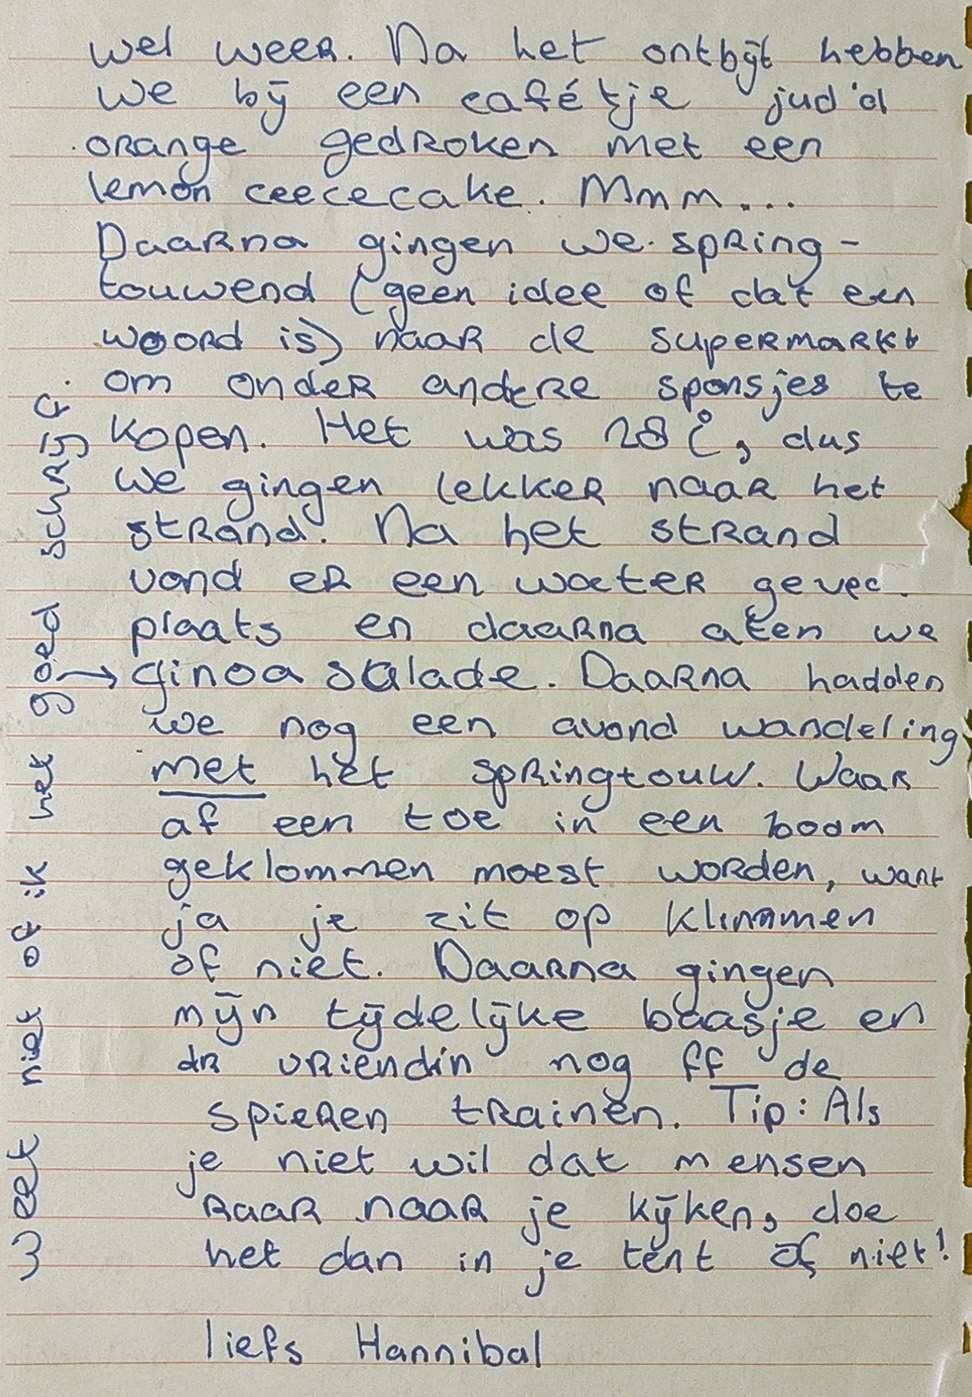 wel weer. Na het ontbijt hebben
we bij een cafétje jud'd
orange gedroken met een
lemon ceececake. Mmm...
Daarna gingen we spring-
touwend (geen idee of dat een
woord is) naar de supermarkt
om onder andere sponsjes te
kopen. Het was 28 °C, dus
we gingen lekker naar het
strand. Na het strand
vond er een water gevec
plaats en daarna aten we
→ ginoa salade. Daarna hadden
we nog een avond wandeling
met het springtouw. Waar
af een toe in een boom
geklommen moest worden, want
ja je zit op klimmen
of niet. Daarna gingen
mijn tijdelijke baasje en
dr vriendin nog ff de
spieren trainen. Tip: Als
je niet wil dat mensen
raar naar je kijken, doe
het dan in je tent of niet!
liefs Hannibal
Weet niet of ik het goed schrijf